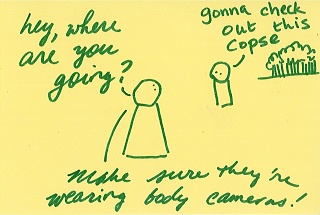 hey, where
are you
going?
gonna check
out this
copse
Make sure they're
wearing body cameras!